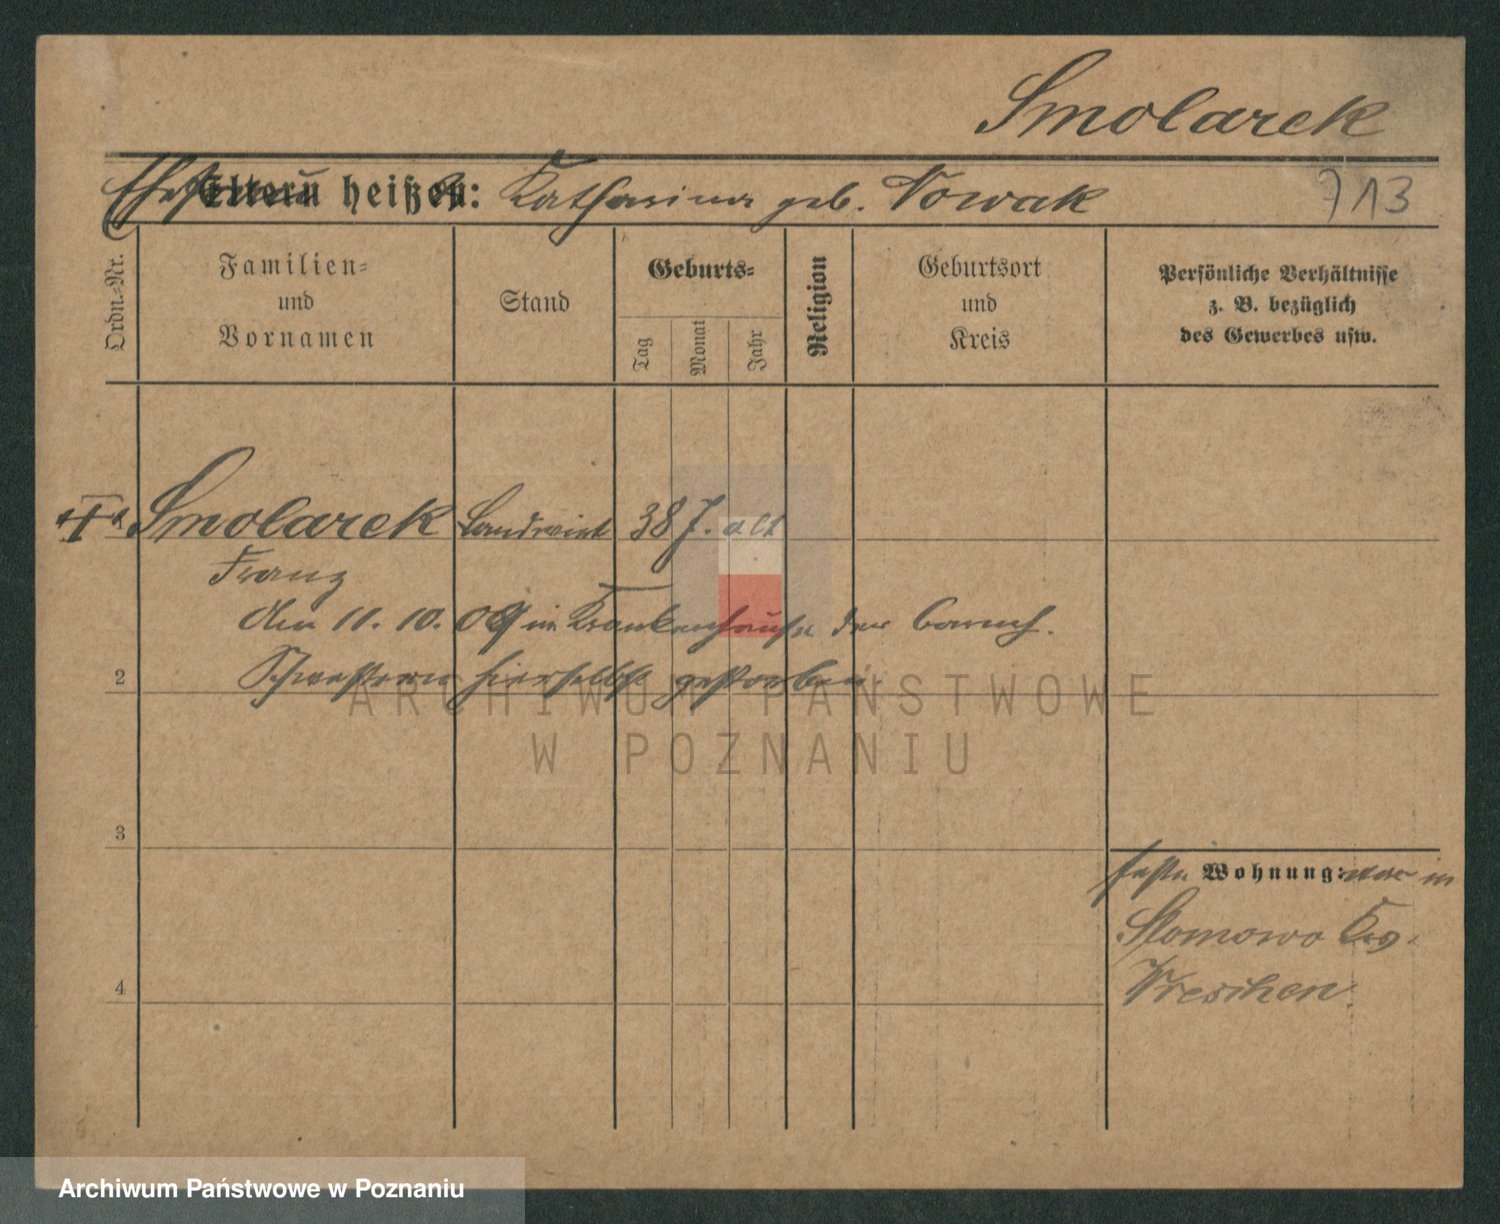 Smolarek
Ehefrau Eltern heißen: Katharina geb. Nowak
713
Ordn.-Nr.
Familien-
und
Vornamen
Stand
Geburts-
Tag
Monat
Jahr
Religion
Geburtsort
und
Kreis
Persönliche Verhältnisse
z. B. bezüglich
des Gewerbes usw.
1 Smolarek Landwirt 38 J. alt
Franz
den 11. 10. 09 im Krankenhause der barmh.
2
Schwestern hierselbst gestorben
ARCHIWUM PAŃSTWOWE
W POZNANIU
3
feste Wohnung: war in
Slomowo Krs.
Wreschen.
4
Archiwum Państwowe w Poznaniu